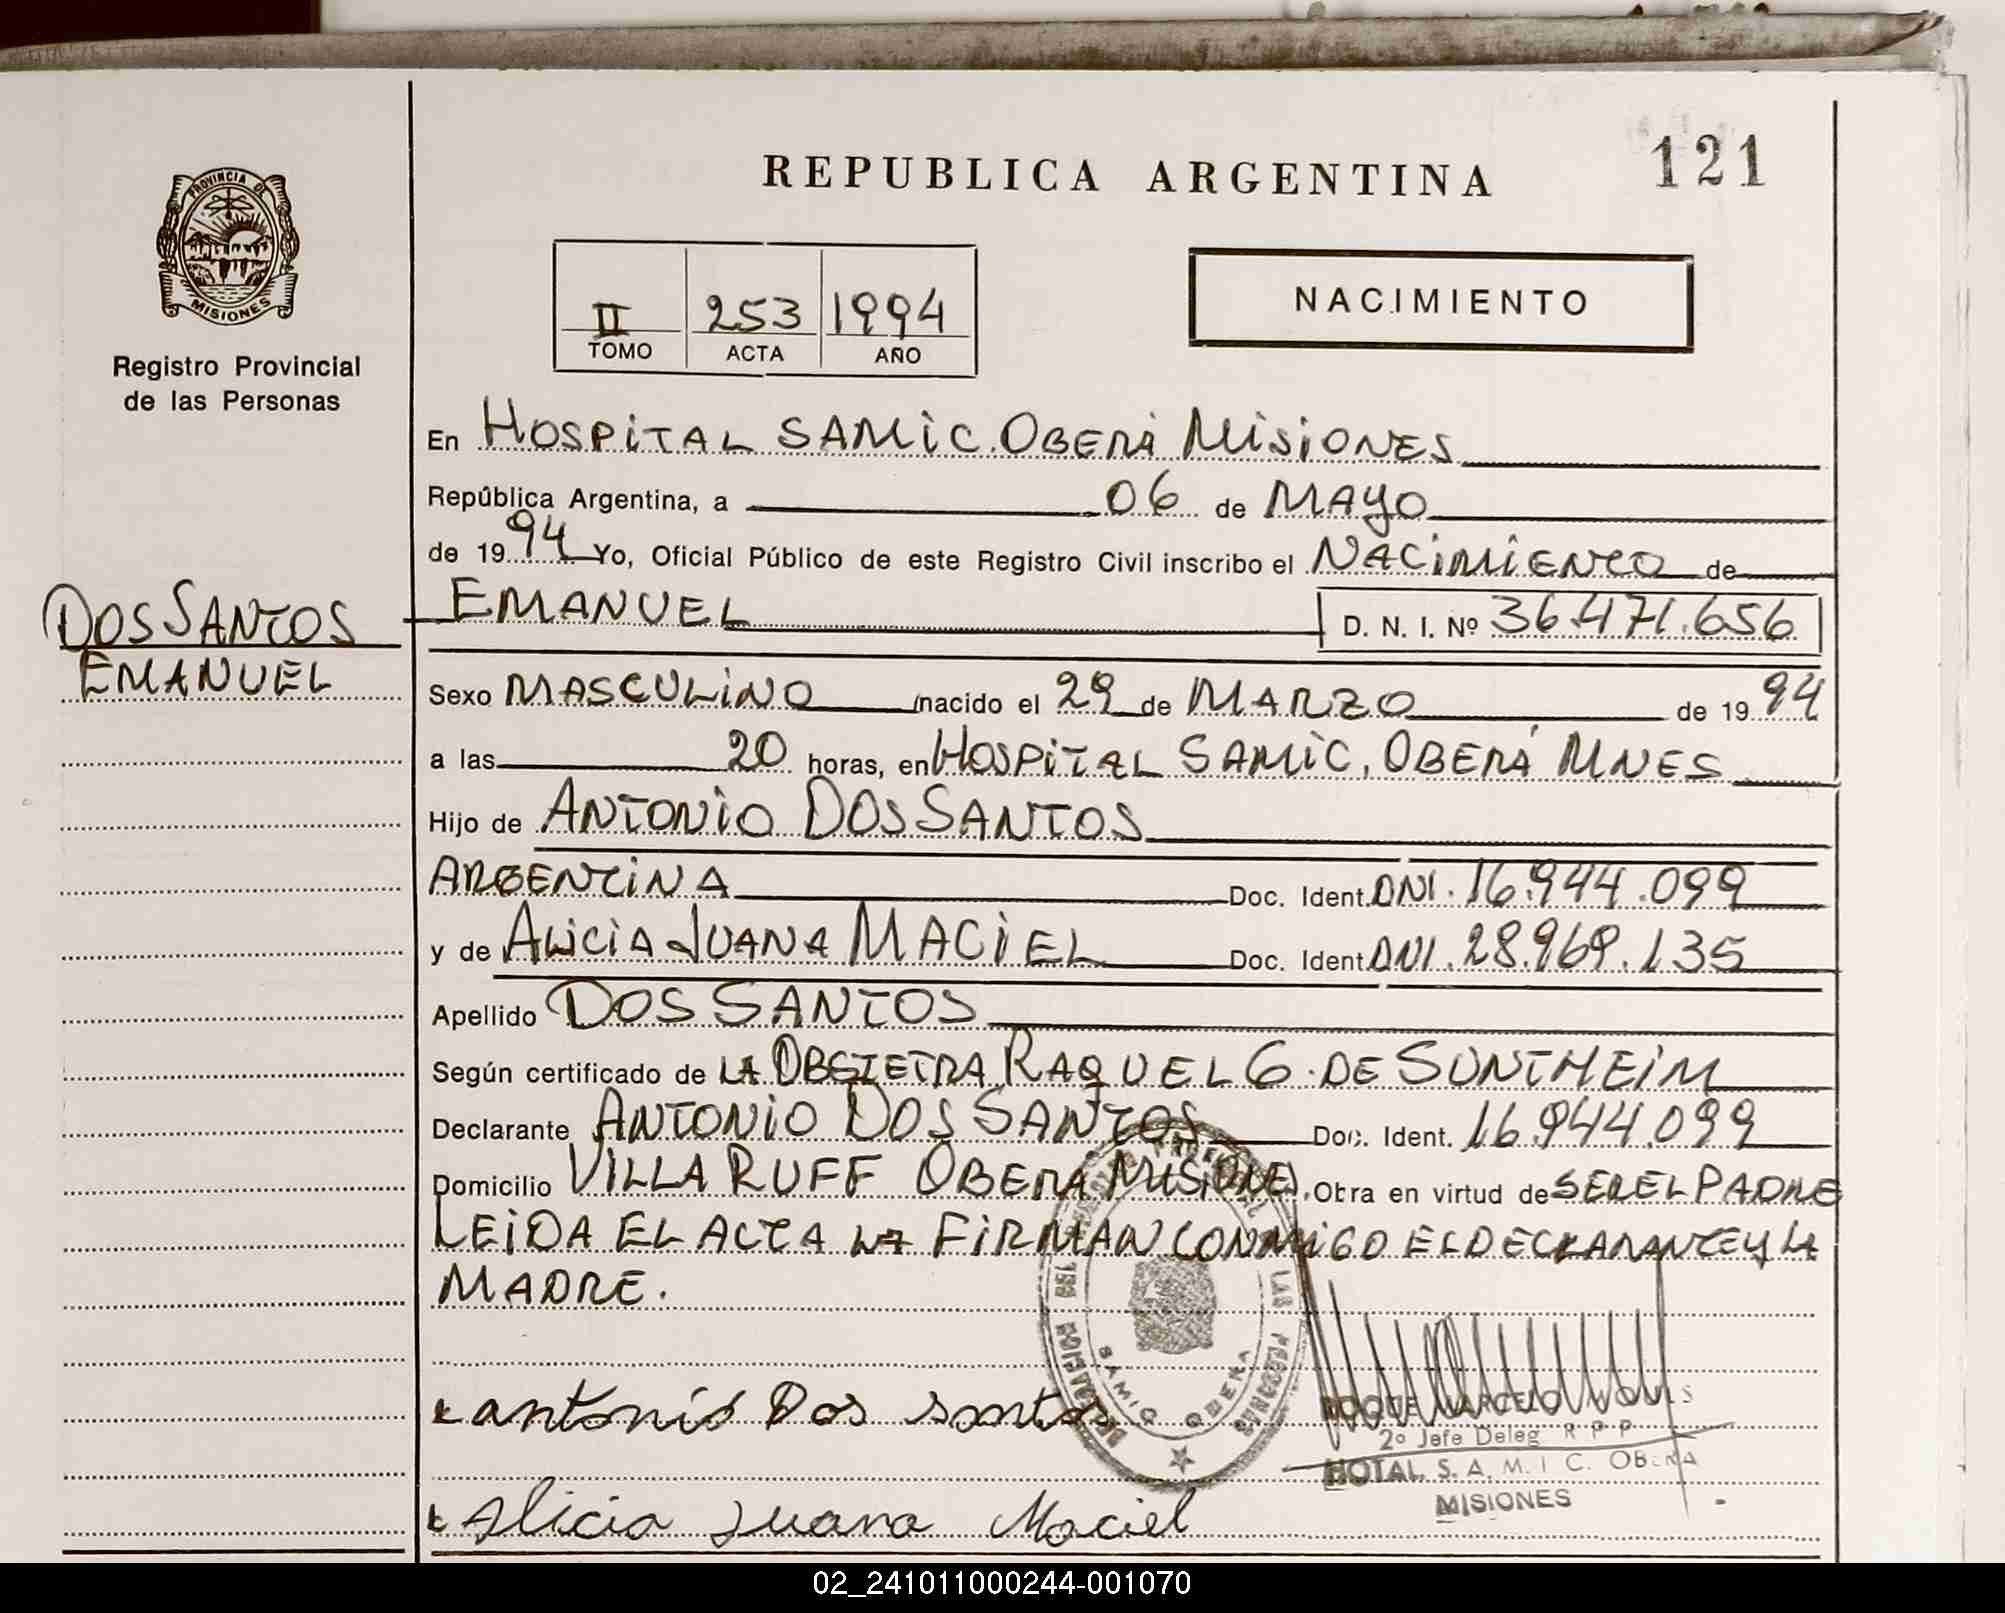 REPUBLICA ARGENTINA
121
PROVINCIA DE
MISIONES
Registro Provincial
de las Personas
II 253 1994
TOMO ACTA AÑO
NACIMIENTO
En HOSPITAL SAMIC. OBERÁ MISIONES
República Argentina, a 06 de MAYO
de 1994 Yo, Oficial Público de este Registro Civil inscribo el NACIMIENTO de
DOS SANTOS
EMANUEL
EMANUEL D. N. I. Nº 36.471.656
Sexo MASCULINO nacido el 29 de MARZO de 1994
a las 20 horas, en HOSPITAL SAMIC, OBERÁ MNES
Hijo de ANTONIO DOS SANTOS
ARGENTINA Doc. Ident. DNI. 16.944.099
y de ALICIA JUANA MACIEL Doc. Ident. DNI. 28.969.135
Apellido DOS SANTOS
Según certificado de LA OBSTETRA RAQUEL G. DE SUNTHEIM
Declarante ANTONIO DOS SANTOS Doc. Ident. 16.944.099
Domicilio VILLA RUFF OBERA MISIONES, Obra en virtud de SER EL PADRE
LEIDA EL ACTA LA FIRMAN CONMIGO EL DECLARANTE Y LA
MADRE.
Antonio Dos Santos
DELEGACION
LAS PERSONAS
SAMIC OBERA
ROQUE MARCELO
2º Jefe Deleg R.P.P.
HOTAL. S. A. M. I. C. OBERA
MISIONES
Alicia Juana Maciel
02_241011000244-001070